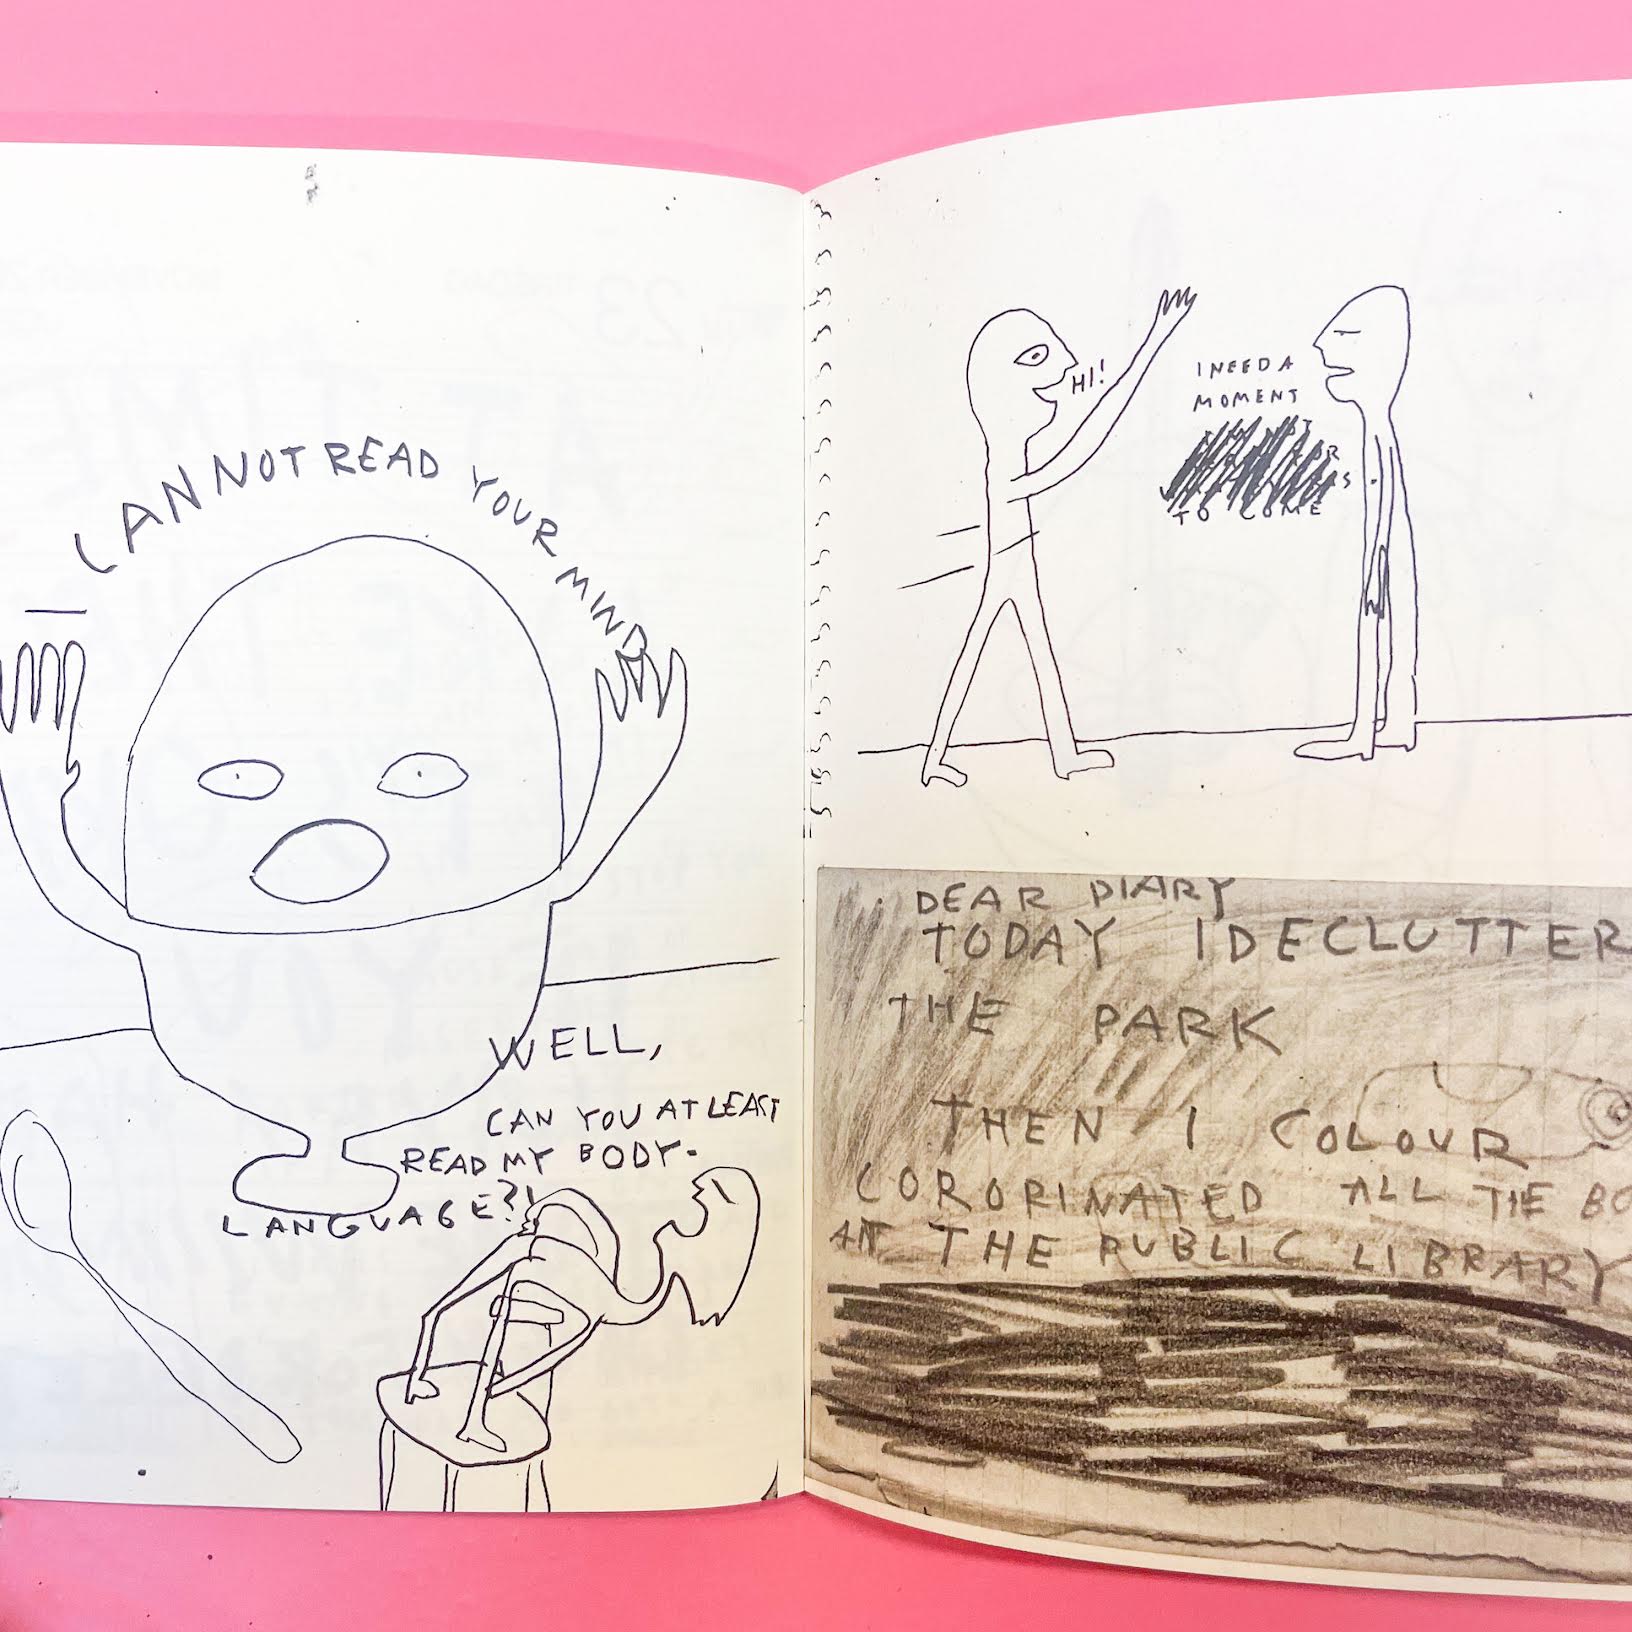 I CANNOT READ YOUR MIND
WELL,
CAN YOU AT LEAST
READ MY BODY-
LANGUAGE?!
HI!
I NEED A
MOMENT
TO COME
DEAR DIARY
TODAY I DECLUTTER
THE PARK
THEN I COLOUR
CORORINATED ALL THE BO
AT THE PUBLIC LIBRARY